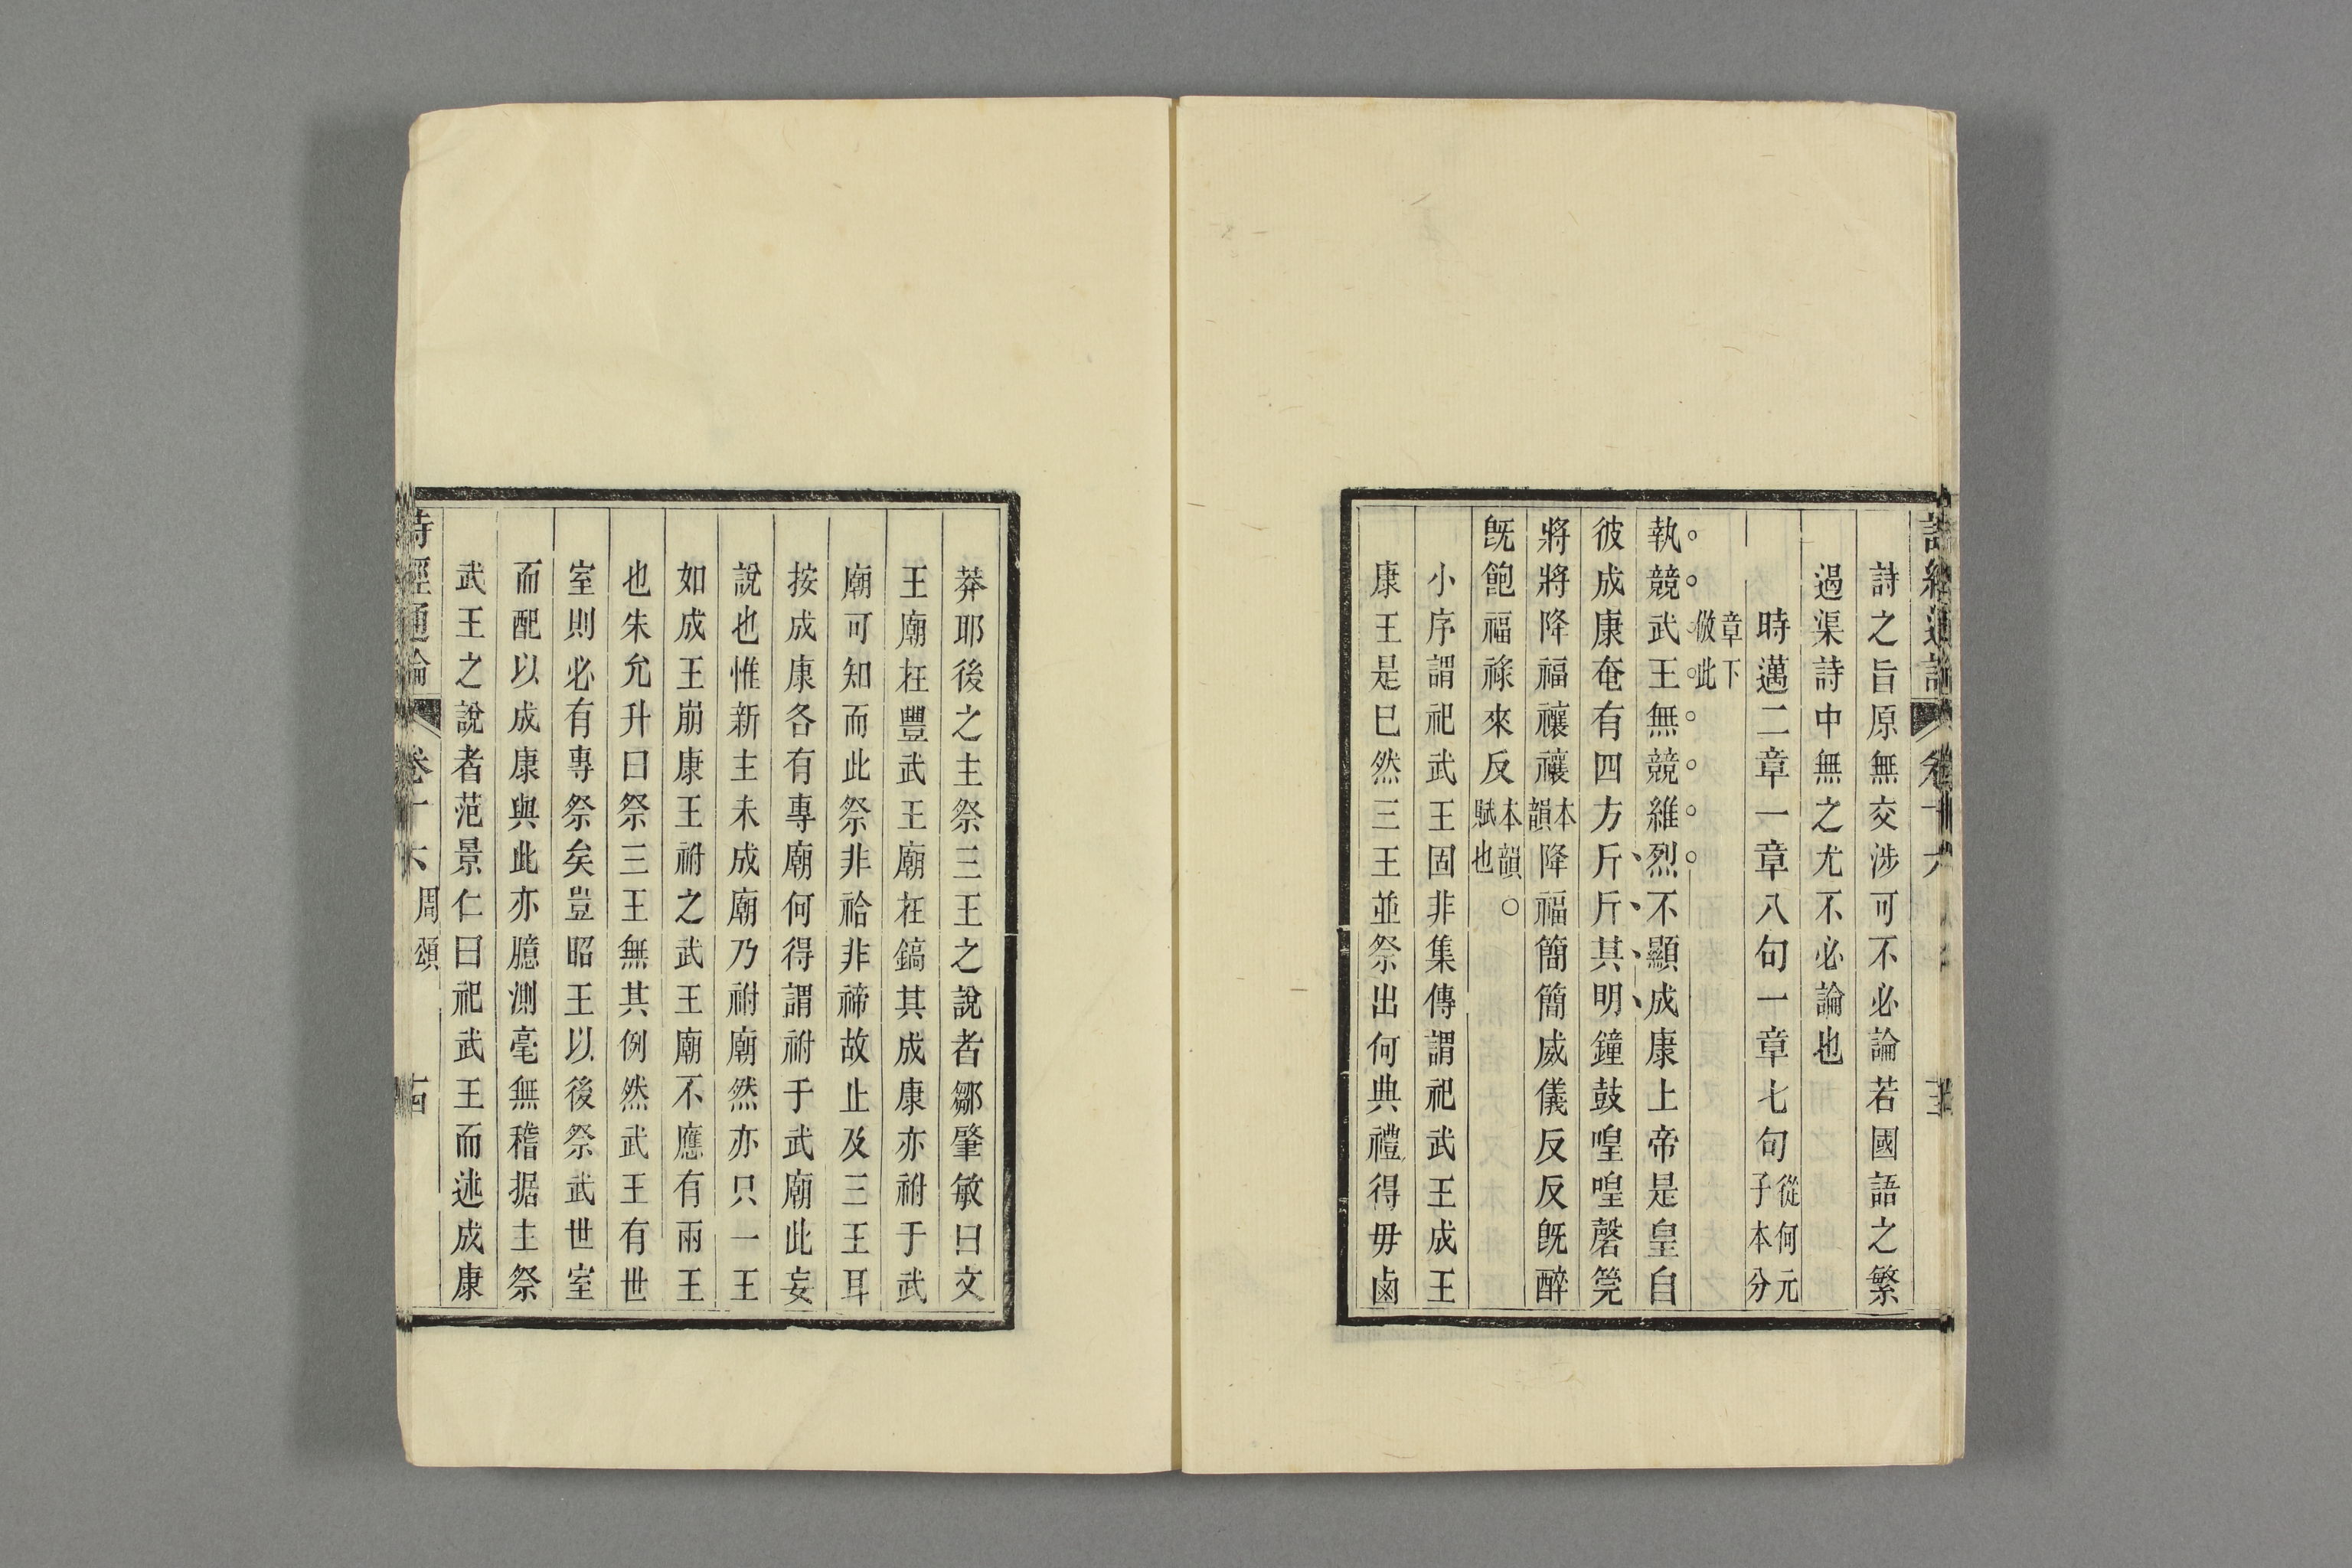 詩之旨原無交涉可不必論若國語之繁
過渠詩中無之尤不必論也
時邁二章一章八句一章七句從何元子本分
章下倣此
執競武王無競維烈不顯成康上帝是皇自
彼成康奄有四方斤斤其明鐘鼓喤喤磬筦
將將降福禳禳本韻降福簡簡威儀反反旣醉
旣飽福祿來反本韻賦也○
小序謂祀武王固非集傳謂祀武王成王
康王是巳然三王並祭出何典禮得毋鹵
莽耶後之主祭三王之說者鄒肇敏曰文
王廟在豐武王廟在鎬其成康亦祔于武
廟可知而此祭非祫非禘故止及三王耳
按成康各有專廟何得謂祔于武廟此妄
說也惟新主未成廟乃祔廟然亦只一王
如成王崩康王祔之武王廟不應有兩王
也朱允升曰祭三王無其例然武王有世
室則必有專祭矣豈昭王以後祭武世室
而配以成康與此亦臆測毫無稽据主祭
武王之說者范景仁曰祀武王而述成康
詩經通論 卷十六 周頌 古